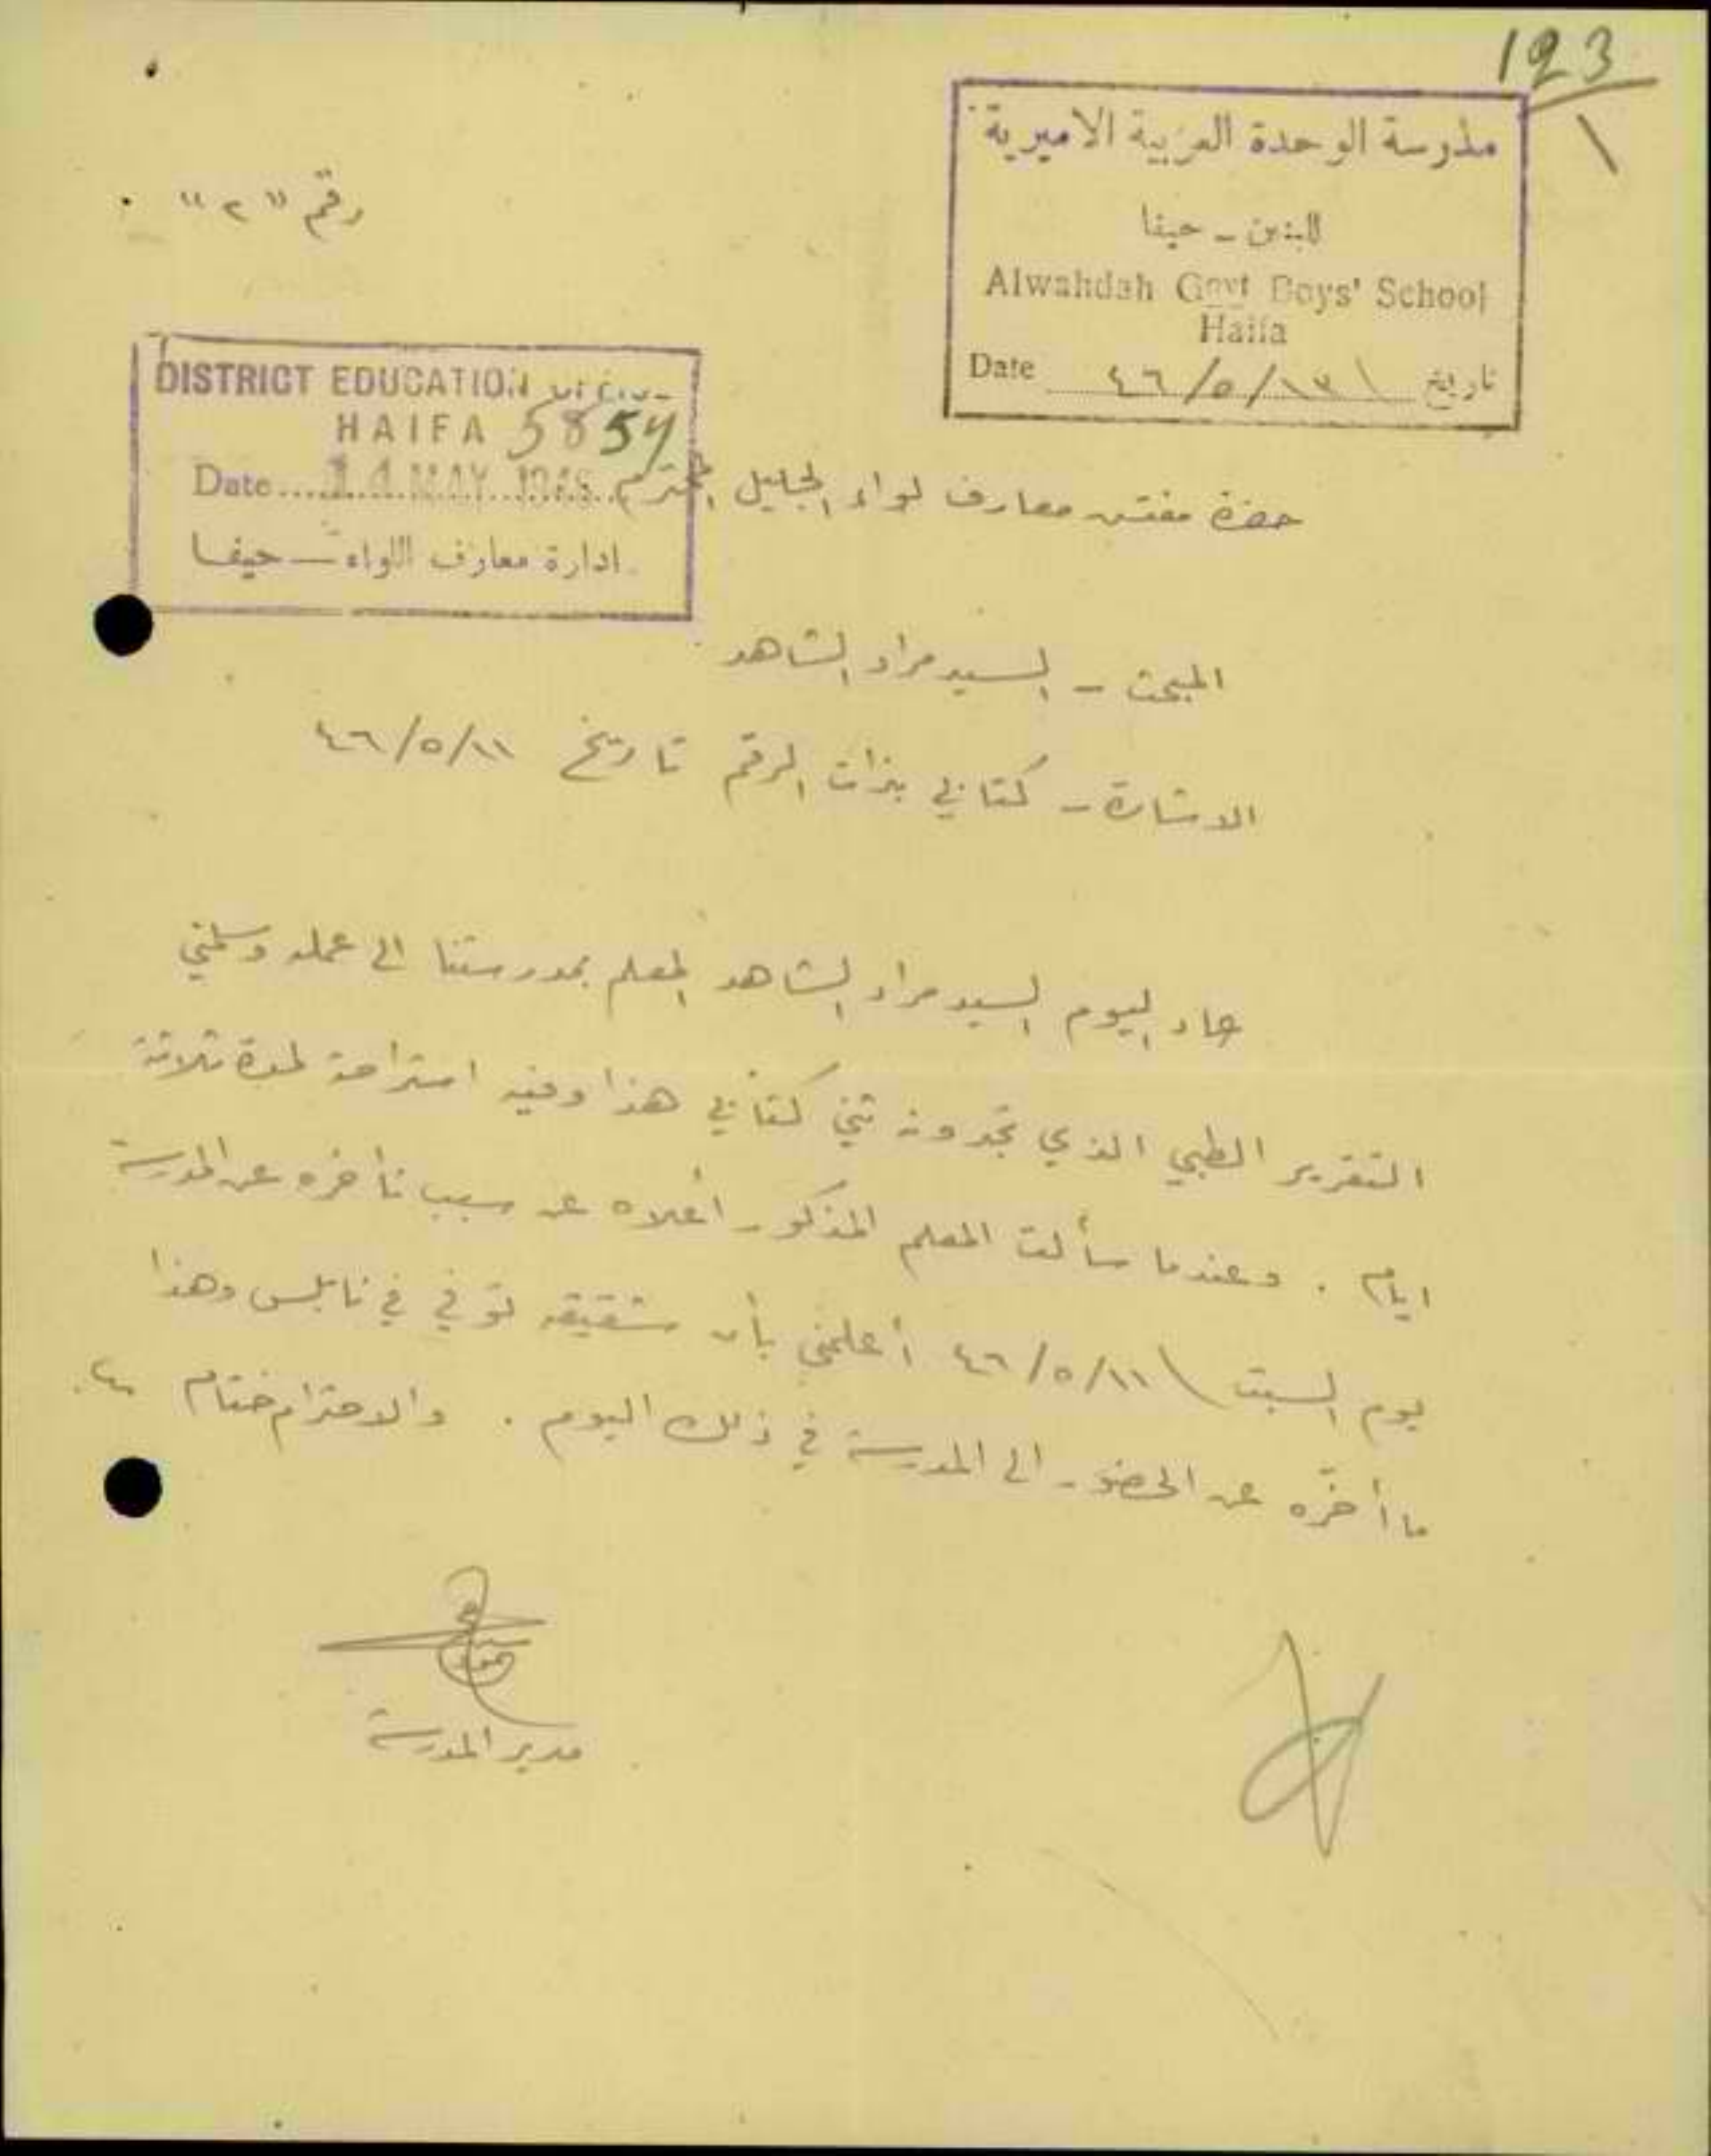 123
١
مدرسة الوحدة العربية الاميرية
للبنين - حيفا
Alwahdah Govt Boys' School
Haifa
Date ١٣/٥/٤٦ تاريخ
رقم "٢"
DISTRICT EDUCATION
HAIFA 5854
Date 14 MAY 1946
ادارة معارف اللواء - حيفا
حضرة مفتش معارف لواء الجليل المحترم
المبحث - السيد مراد الشاهد
الاشارة - كتابي بذات الرقم تاريخ ١١/٥/٤٦
عاد اليوم السيد مراد الشاهد المعلم بمدرستنا الى عمله وسلمني
التقرير الطبي الذي تجدونه ثني كتابي هذا وفيه استراحة لمدة ثلاثة
ايام . وعندما سألت المعلم المذكور أعلاه عن سبب تأخره عن المدرسة
يوم السبت ١١/٥/٤٦ أعلمني بأن شقيقه توفي في نابلس وهذا
ما أخّره عن الحضور الى المدرسة في ذلك اليوم . والاحترام ختام
مدير المدرسة